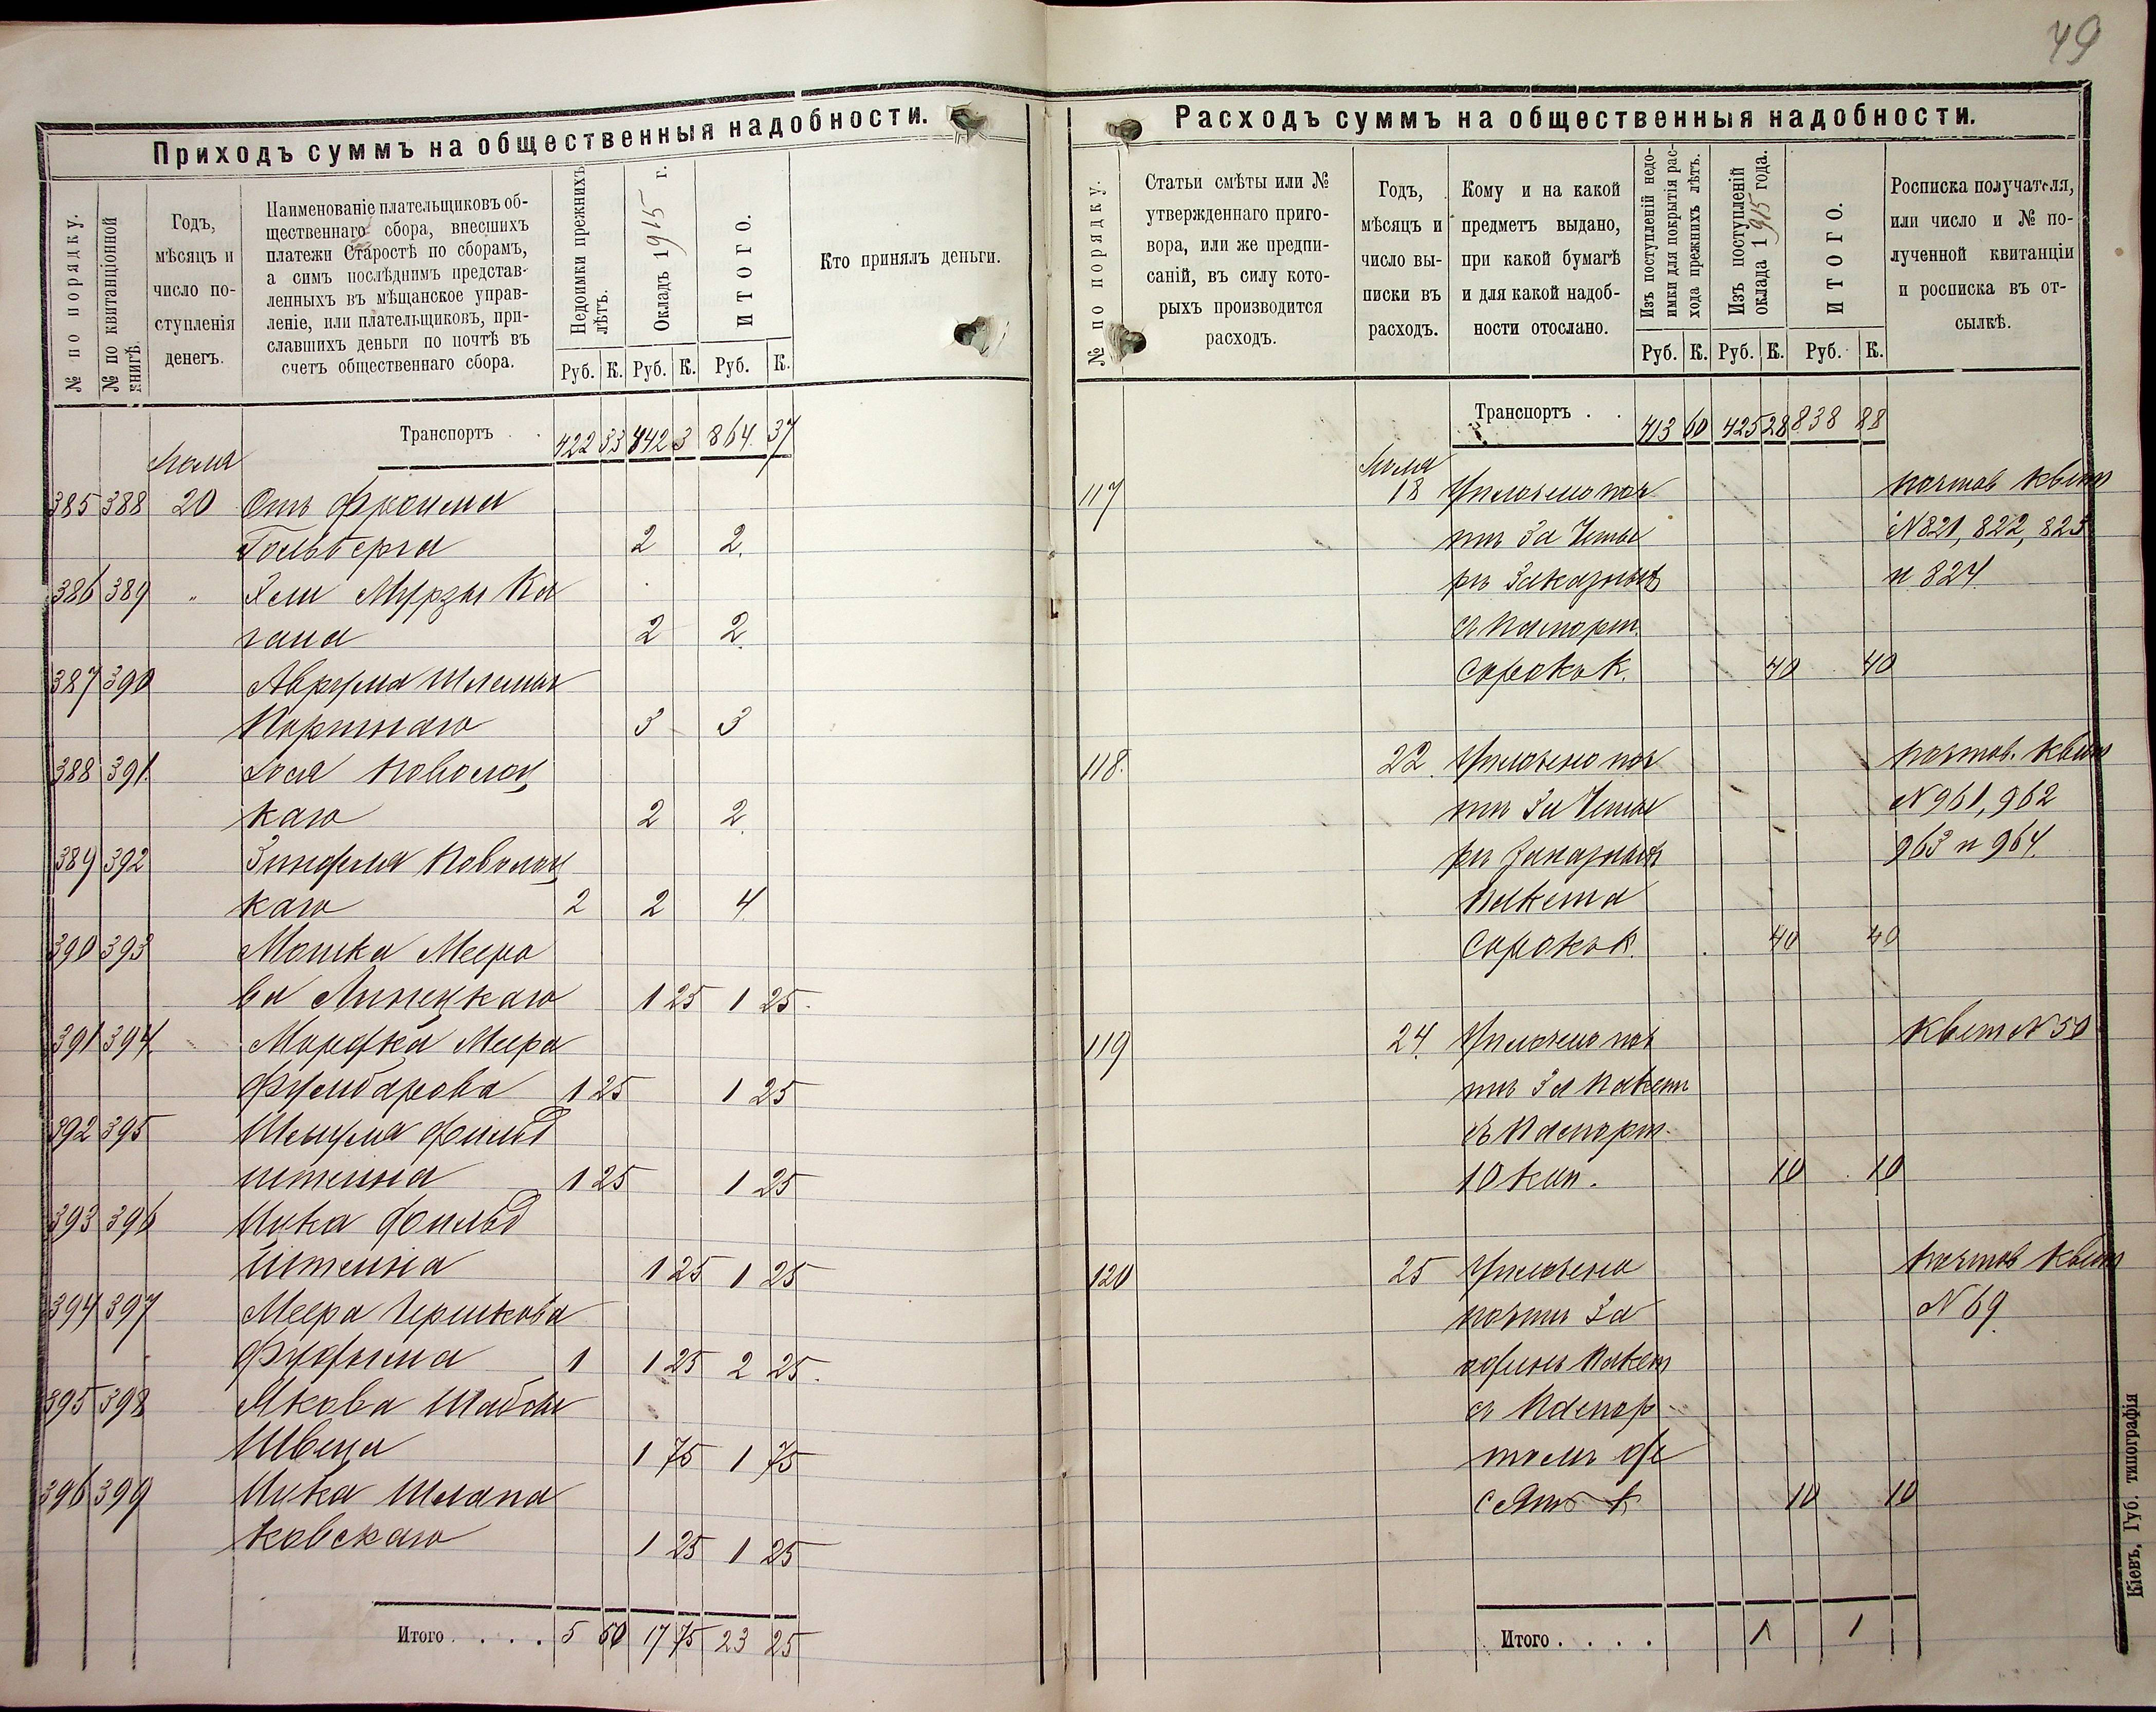 49
Приходъ суммъ на общественныя надобности.
№ по порядку.
№ по квитанціонной книгѣ.
Годъ,
мѣсяцъ и
число по-
ступленія
денегъ.
Наименованіе плательщиковъ об-
щественнаго сбора, внесшихъ
платежи Старостѣ по сборамъ,
а симъ послѣднимъ представ-
ленныхъ въ мѣщанское управ-
леніе, или плательщиковъ, при-
славшихъ деньги по почтѣ въ
счетъ общественнаго сбора.
Недоимки прежнихъ лѣтъ.
Окладъ 1915 г.
ИТОГО.
Кто принялъ деньги.
Руб. К. Руб. К. Руб. К.
Транспортъ . . 422 33 442 3 864 37
385 388 20 Отъ Фроима
Гольберга 2 2.
386 389 " Хели Мурзы Ка
гана 2 2.
387 390 Аврума Шлемы
Портнаго 3 3
388 391. Іося Новолоц
каго 2 2.
389 392 Зинделя Новолоц
каго 2 2 4.
390 393 Мошка Мееро
ва Липецкаго 1 25 1 25.
391 394 Мордка Меера
1 25 1 25
392 395 Шлиома Фильд
штейна 1 25 1 25
393 396 Ицка Фильд
штейна 1 25 1 25
394 397 Меера Гершкова
1 1 25 2 25.
395 398 Якова Шабсы
Швеца 1 75 1 75
396 399 Ицка Шлапа
ковскаго 1 25 1 25
Итого . . . . 5 50 17 75 23 25
Расходъ суммъ на общественныя надобности.
№ по порядку.
Статьи смѣты или №
утвержденнаго приго-
вора, или же предпи-
саній, въ силу кото-
рыхъ производится
расходъ.
Годъ,
мѣсяцъ и
число вы-
писки въ
расходъ.
Кому и на какой
предметъ выдано,
при какой бумагѣ
и для какой надоб-
ности отослано.
Изъ поступленій недо-
имки для покрытія рас-
хода прежнихъ лѣтъ.
Изъ поступленій
оклада 1915 года.
ИТОГО.
Росписка получателя,
или число и № по-
лученной квитанціи
и росписка въ от-
сылкѣ.
Руб. К. Руб. К. Руб. К.
Транспортъ . . 413 60 425 28 838 88
117 18 Уплочено поч почтов квит
тѣ За Четы №821, 822, 823
ри Заказныхъ и 824
съ Паспорт.
Сорокъ К. 40 40
118. 22. Уплочено поч почтов. квит
тѣ За Четы №961, 962
ри Заказныхъ 963 и 964.
Пакета
Сорокъ К. 40 40
119 24. Уплочено поч Квит №50
тѣ За Пакетъ
съ Паспорт.
10 коп. 10 10
120 25 Уплочено почтов квит
почтѣ За №69.
одинъ Пакетъ
съ Паспор
томъ де
сять к 10 10
Итого . . . . 1 1
Кіевъ, Губ. типографія